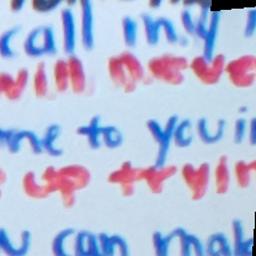 call my
will never
me to you in
up tryin
u can mak